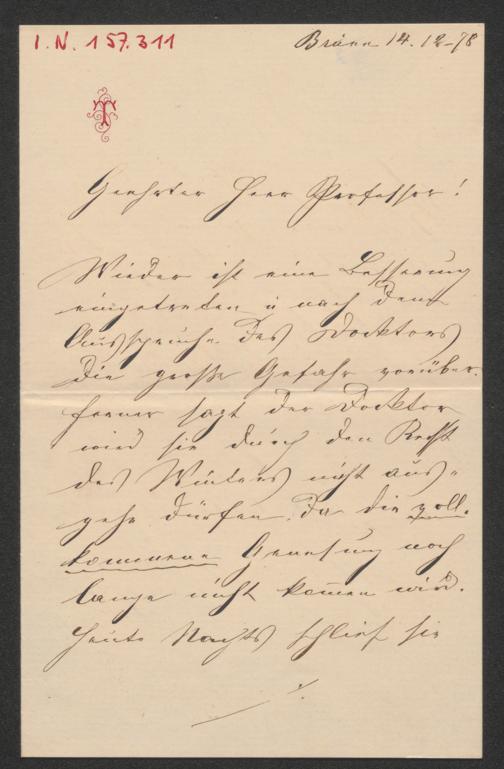 I.N. 157.311
Brünn 14.12-78
T
Geehrter Herr Professor!
Wieder ist eine Besserung
eingetreten u nach dem
Ausspruche des Docktors
die große Gefahr vorüber.
ferner sagt der Docktor
wird sie durch den Rest
des Winters nicht aus-
gehn dürfen, da die voll-
kommene Genesung noch
lange nicht kommen wird.
Heute Nachts schlief sie
./.